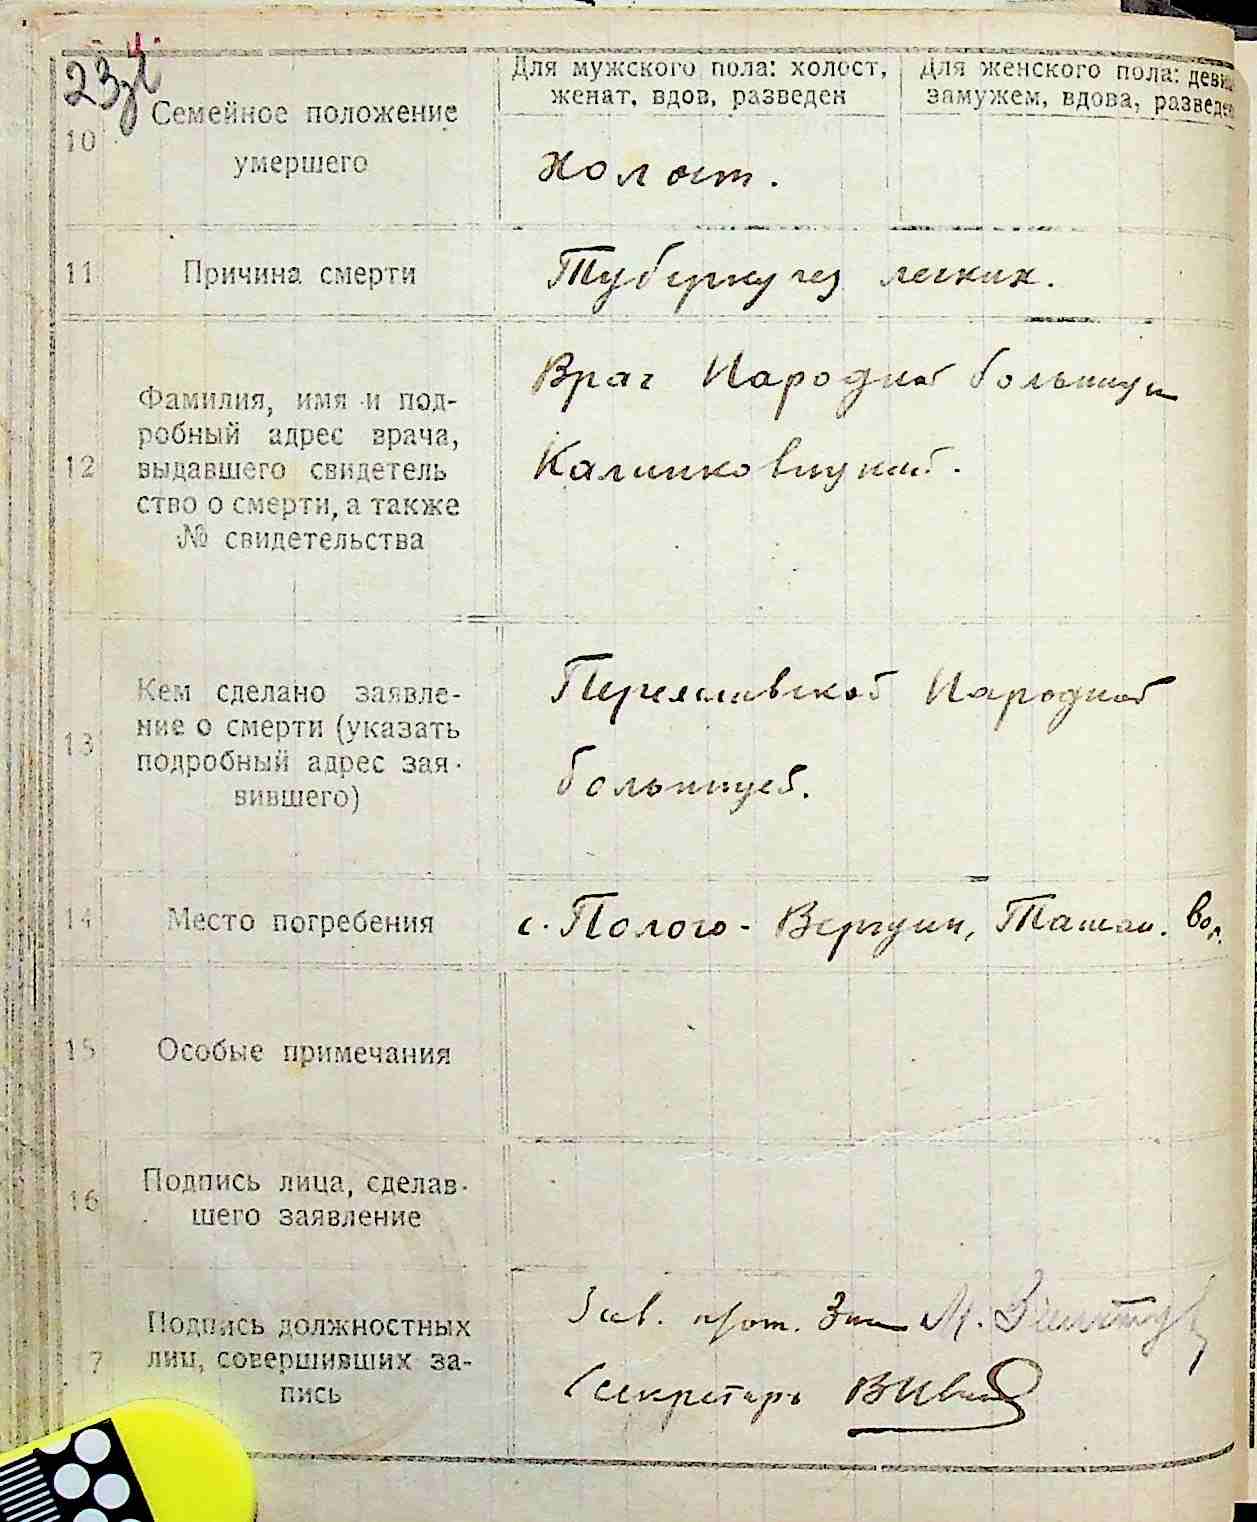 23
10
Семейное положение
умершего
Для мужского пола: холост,
женат, вдов, разведен
Для женского пола: девиц
замужем, вдова, разведен
Холост.
11
Причина смерти
Туберкулез легких.
12
Фамилия, имя и под-
робный адрес врача,
выдавшего свидетель
ство о смерти, а также
№ свидетельства
Врач Народной больницы
Калинковицкий.
13
Кем сделано заявле-
ние о смерти (указать
подробный адрес зая-
вившего)
Переяславской Народной
больницей.
14
Место погребения
с. Полого-Вергуны, Ташан. вол.
15
Особые примечания
16
Подпись лица, сделав-
шего заявление
17
Подпись должностных
лиц, совершивших за-
пись
Зав.
М.
Секретарь